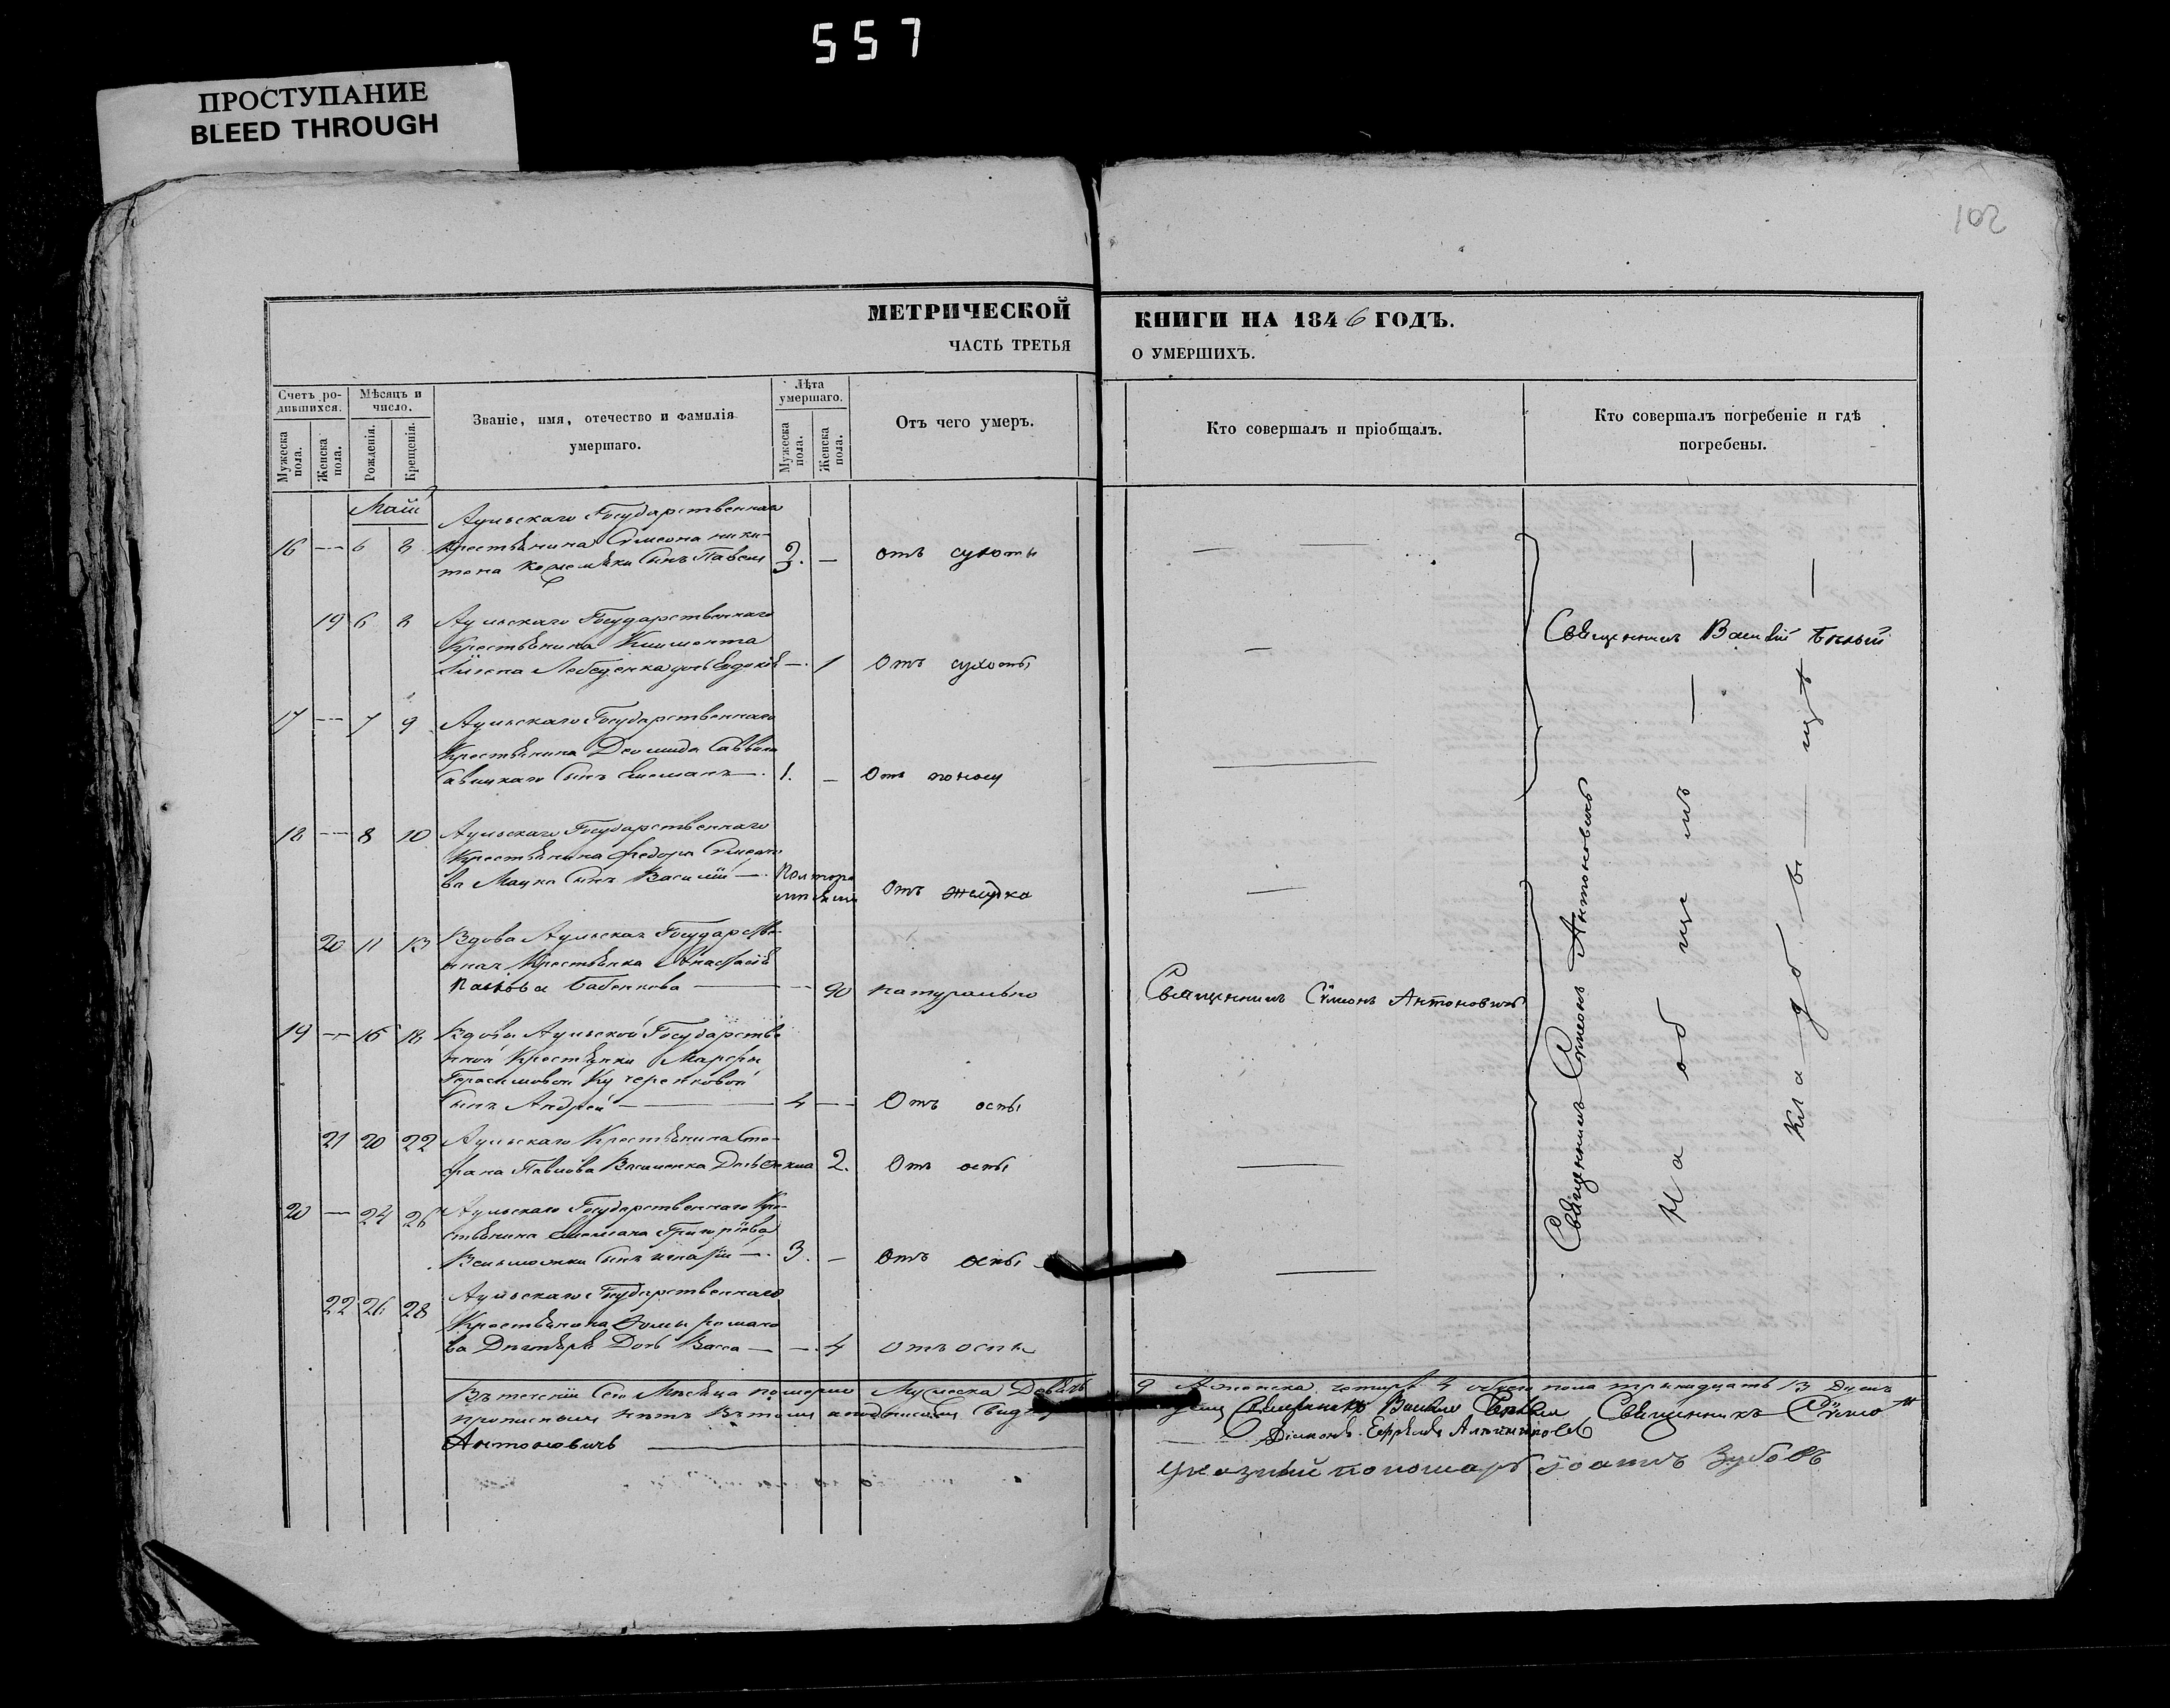 557
ПРОСТУПАНИЕ
BLEED THROUGH
102
МЕТРИЧЕСКОЙ КНИГИ НА 1846 ГОДЪ.
ЧАСТЬ ТРЕТЬЯ О УМЕРШИХЪ.
Счетъ родившихся.
Мѣсяцъ и число.
Званіе, имя, отечество и фамилія умершаго.
Лѣта умершаго.
Отъ чего умеръ.
Кто совершалъ и пріобщалъ.
Кто совершалъ погребеніе и гдѣ погребены.
Мужеска пола.
Женска пола.
Рожденія.
Крещенія.
Мужеска пола.
Женска пола.
Май
Аульскаго Государственнаго
16 — 6 8 Крестьянина Сѵмеона Ники-
тина сынъ Павелъ 3. — отъ сухоты
19 6 8 Аульскаго Государственнаго
Крестьянина Климента
Лебеденка дочь Евдокія — 1 Отъ сухоты
17 — 7 9 Аульскаго Государственнаго
Крестьянина Деомида Саввина
Савицкаго сынъ — 1. — Отъ поносу
18 — 8 10 Аульскаго Государственнаго
Крестьянина Федора Сѵмеоно
ва Мацка сынъ Василій — Полтора
Отъ желудка
20 11 13 Вдова Аульская Государстве-
нная Крестьянка Анастасія
Бабенкова — 90 натурально
19 — 16 18 Вдовы Аульской Государстве
нной Крестьянки Марфы
Герасимовой Кучеренковой
сынъ Андрей — 4 — Отъ оспы
21 20 22 Аульскаго Крестьянина Сте-
фана Павлова Василенка Дочь 2. Отъ оспы
20 — 24 26 Аульскаго Государственнаго Кре-
стьянина Григоріева
сынъ — 3. — Отъ оспы
22 26 28 Аульскаго Государственнаго
Крестьянина Ѳомы Романо
ва Дегтяря Дочь Васса — 4 Отъ оспы
Священникъ Василій Бѣлый
Священникъ Сѵмеонъ Антоновичъ
Священникъ Сѵмеонъ Антоновичъ
На общемъ
кладбищѣ
Въ теченіи Сего Мѣсяца померло Мужеска Девять 9 Женска четыре 4 обоего пола тринадцать 13 Душъ
Священникъ Сѵмеонъ
Антоновичъ
Діаконъ Ефремъ
Указный пономарь Іоаннъ Зубовъ